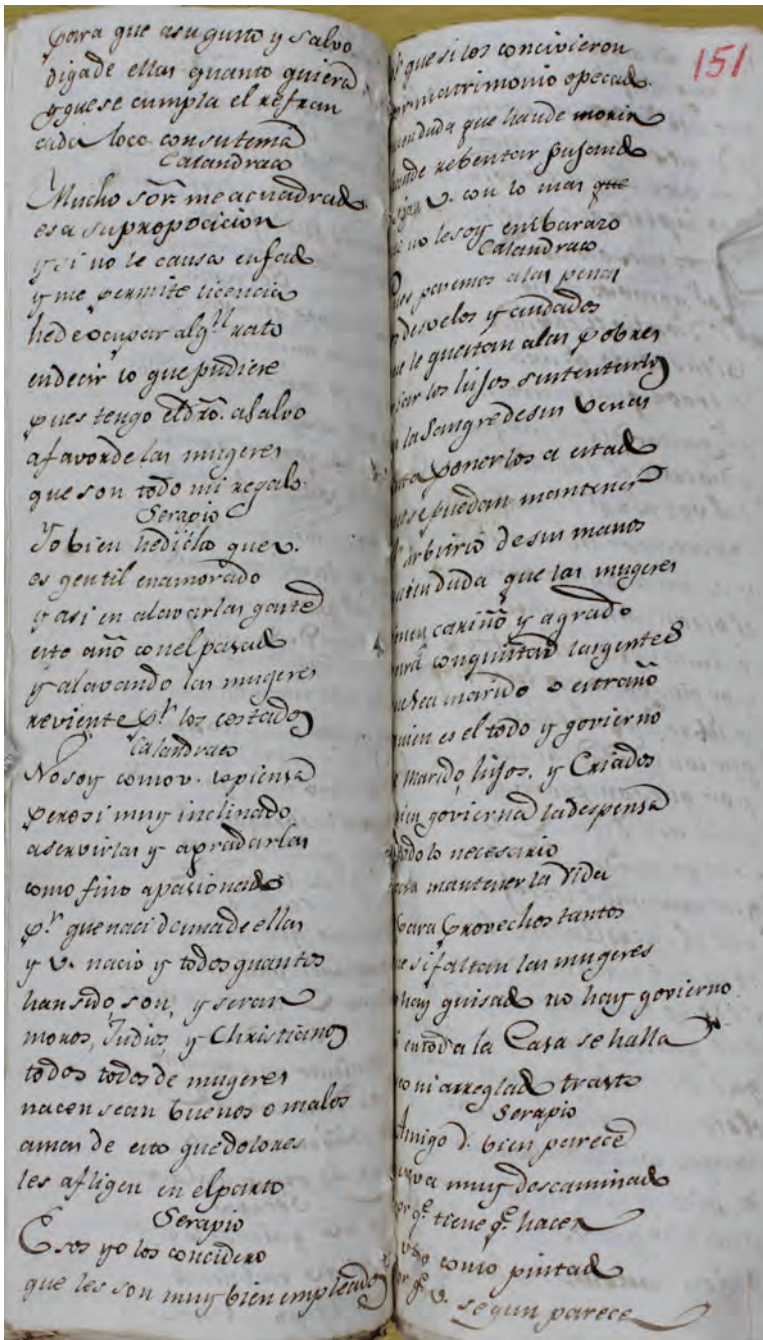 para que asugusto y salvo
digade ellas quanto quiera
y quese cumpla el refran
cada loco consutema
Calandraco
Mucho sōr. me acuadrado
esa su propocicion
y si no le causa enfado
y me permite licencia
hede ocupar algⁿ rato
endecir lo que pudiere
pues tengo el dr̄o. asalvo
afavorde las mugeres
que son todo mi regalo
Serapio
Yo bien hedicho que v.
es gentil enamorado
y asi en alavarlas gaste
este año conel pasado
y alavando las mugeres
reviente pr los costados
Calandraco
No soy como v. lo piensa
pero si muy inclinado
aservirlas y agradarlas
como fino apasionado
pr. que naci deunade ellas
y v. nacio y todos quantos
han sido, son, y seran
moros, Judios, y Christianos
todos todos de mugeres
nacen sean buenos o malos
amas de esto quedolores
les afligen en elparto
Serapio
Esos yo los concidero
que les son muy bien empleados
151
que si los concivieron
matrimonio opecado
duda que hande morir
rebentar pujando
v. con lo mas que
no lesoy embarazo
Calandraco
pasemos alas penas
desvelos y cuidados
le questan alas pobres
los hijos sustentarlos
la Sangre desus venas
ponerlos a estado
sepuedan mantener
arbitrio desus manos
duda que las mugeres
cariño y agrado
conquistan lasgentes
sea marido o estraño
quien es el todo y govierno
Marido, hijos, y Criados
quien govierna ladespensa
todolo necesario
para mantener la Vida
para provechos tantos
sifaltan las mugeres
hay guisado no hay govierno
entoda la Casa se halla
ni arreglado trasto
Serapio
Amigo d. bien parece
va muy descaminado
por qe. tiene qe. hacer
vso como pintado
por qe. v. segun parece